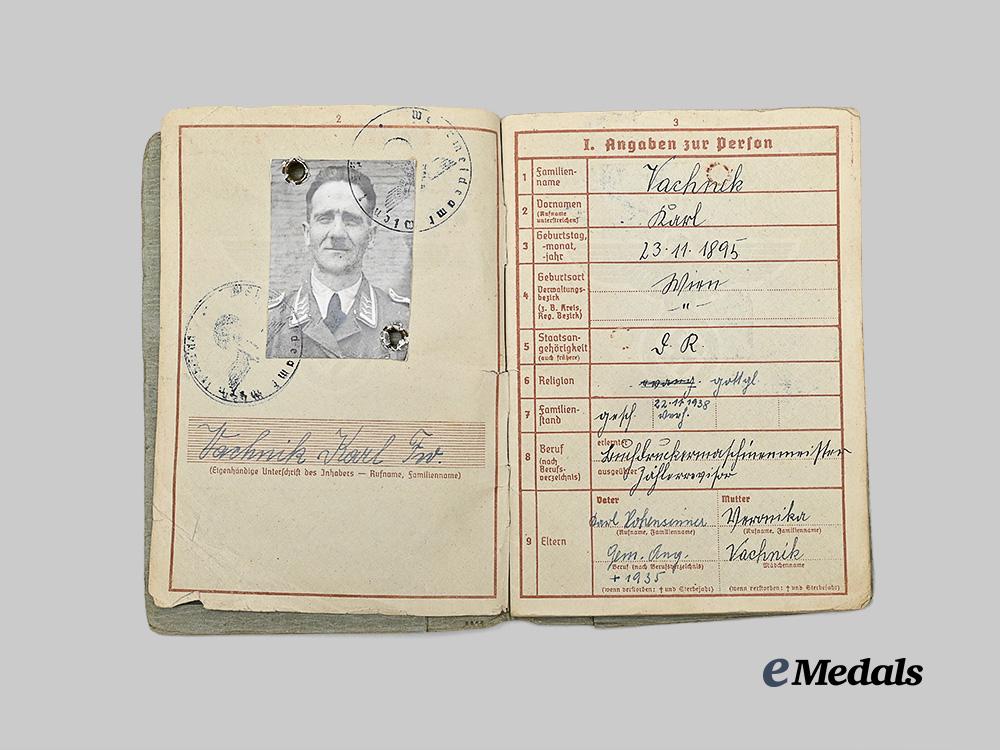 2
Wehrmeldeamt
Wien
Wehrmeldeamt
Vachnik Karl Fw.
(Eigenhändige Unterschrift des Inhabers — Rufname, Familienname)
3
I. Angaben zur Person
1 Familien-
name
Vachnik
2 Vornamen
(Rufname
unterstreichen)
Karl
3 Geburtstag,
-monat,
-jahr
23.11.1895
4 Geburtsort
Verwaltungs-
bezirk
(z. B. Kreis,
Reg. Bezirk)
Wien
- " -
5 Staatsan-
gehörigkeit
(auch frühere)
D. R.
6 Religion
evang. gottgl.
7 Familien-
stand
gesch. 22.11.1938
verh.
8 Beruf
(nach
Berufs-
verzeichnis)
erlernter
Buchdruckermaschinenmeister
ausgeübter
Zählerrevisor
9 Eltern
Vater
Karl Hohensinner
(Rufname, Familienname)
Gem. Ang.
Beruf (nach Berufsverzeichnis)
+ 1935
(wenn verstorben: † und Sterbejahr)
Mutter
Veronika
(Rufname, Familienname)
Vachnik
Mädchenname
(wenn verstorben: † und Sterbejahr)
eMedals